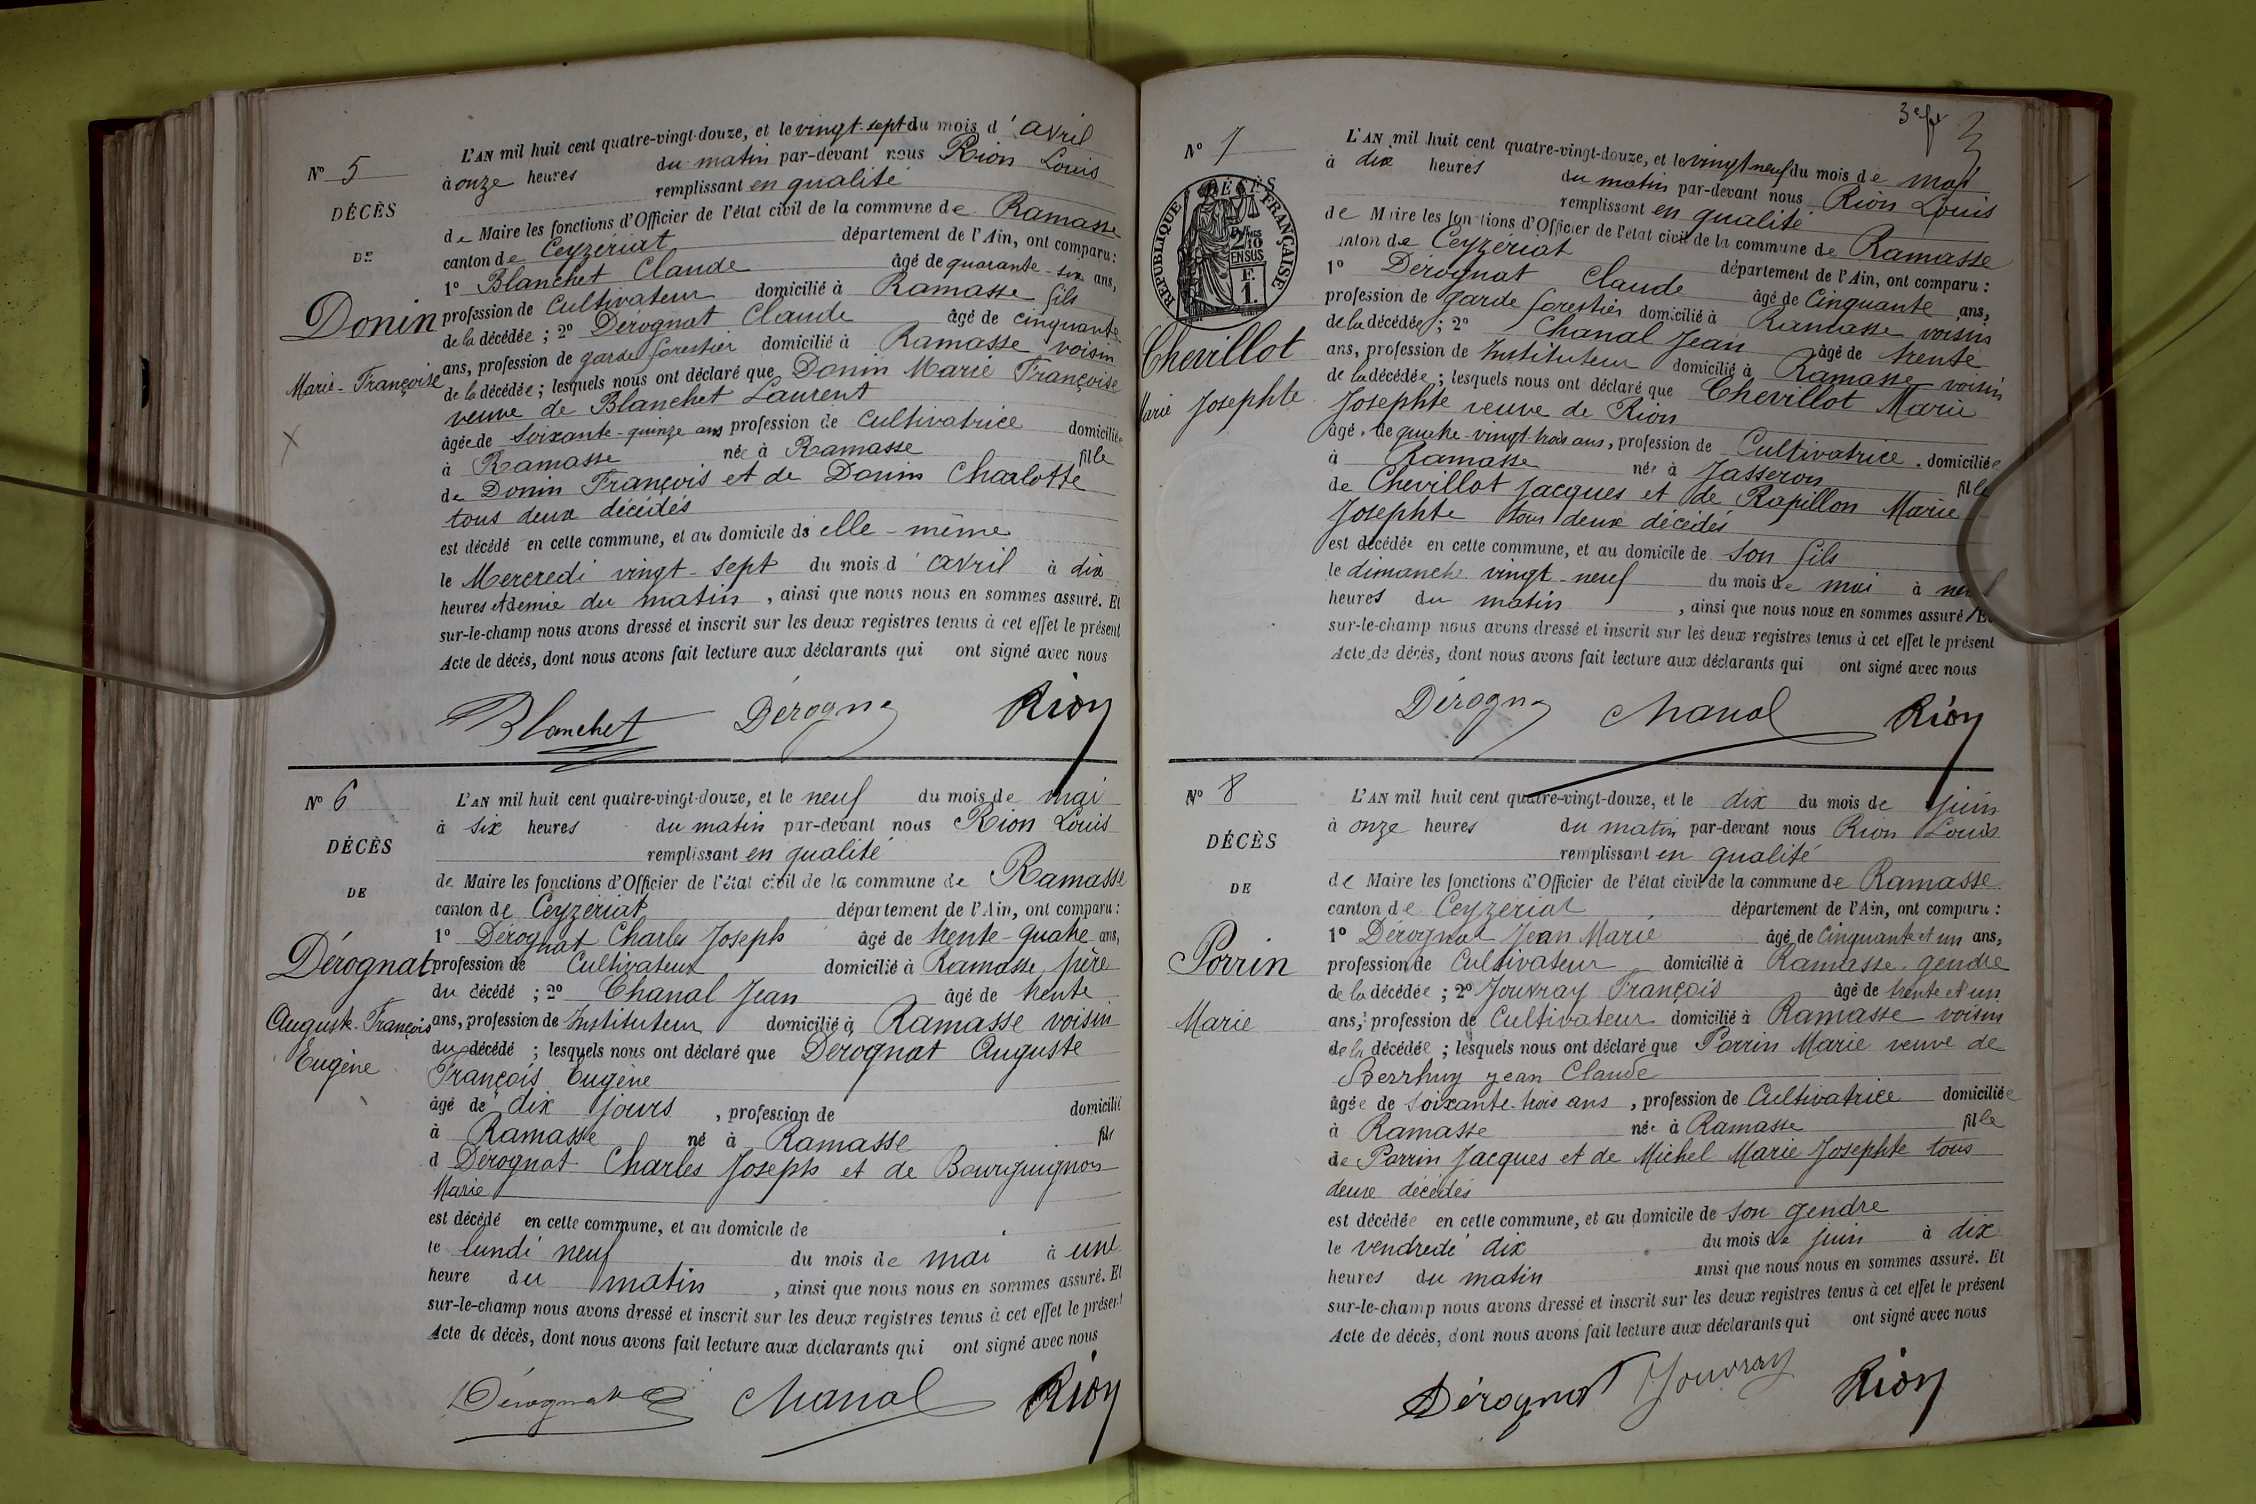 N° 5
DÉCÈS
DE
Donin
Marie-Françoise
L'AN mil huit cent quatre-vingt-douze, et le vingt-sept du mois d'avril
à onze heures du matin par-devant nous Rion Louis
remplissant en qualité
de Maire les fonctions d'Officier de l'état civil de la commune de Ramasse
canton de Ceyzériat département de l'Ain, ont comparu :
1° Blanchet Claude âgé de quarante-six ans,
profession de Cultivateur domicilié à Ramasse fils
de la décédée ; 2° Dérognat Claude âgé de cinquante
ans, profession de garde forestier domicilié à Ramasse voisin
de la décédée ; lesquels nous ont déclaré que Donin Marie Françoise
veuve de Blanchet Laurent
âgée de soixante-quinze ans profession de Cultivatrice domiciliée
à Ramasse née à Ramasse fille
de Donin François et de Donin Charlotte
tous deux décédés
est décédé en cette commune, et au domicile de elle-même
le Mercredi vingt-sept du mois d'avril à dix
heures et demie du matin, ainsi que nous nous en sommes assuré. Et
sur-le-champ nous avons dressé et inscrit sur les deux registres tenus à cet effet le présent
Acte de décès, dont nous avons fait lecture aux déclarants qui ont signé avec nous
Blanchet Dérogna Rion
N° 6
DÉCÈS
DE
Dérognat
Auguste-François
Eugène
L'AN mil huit cent quatre-vingt-douze, et le neuf du mois de mai
à six heures du matin par-devant nous Rion Louis
remplissant en qualité
de Maire les fonctions d'Officier de l'état civil de la commune de Ramasse
canton de Ceyzériat département de l'Ain, ont comparu :
1° Dérognat Charles Joseph âgé de trente-quatre ans,
profession de Cultivateur domicilié à Ramasse père
du décédé ; 2° Chanal Jean âgé de trente
ans, profession de Instituteur domicilié à Ramasse voisin
du décédé ; lesquels nous ont déclaré que Dérognat Auguste
François Eugène
âgé de dix jours, profession de domicilié
à Ramasse né à Ramasse fils
d Dérognat Charles Joseph et de Bourguignon
Marie
est décédé en cette commune, et au domicile de
le lundi neuf du mois de mai à une
heure du matin, ainsi que nous nous en sommes assuré. Et
sur-le-champ nous avons dressé et inscrit sur les deux registres tenus à cet effet le présent
Acte de décès, dont nous avons fait lecture aux déclarants qui ont signé avec nous
Dérognat Chanal Rion
3e ft
3
N° 7
DÉCÈS
RÉPUBLIQUE FRANÇAISE
2/10
EN SUS
F.
1.
Chevillot
Marie Josephte
L'AN mil huit cent quatre-vingt-douze, et le vingt neuf du mois de mai
à dix heures du matin par-devant nous Rion Louis
remplissant en qualité
de Maire les fonctions d'Officier de l'état civil de la commune de Ramasse
canton de Ceyzériat département de l'Ain, ont comparu :
1° Dérognat Claude âgé de Cinquante ans,
profession de garde forestier domicilié à Ramasse voisin
de la décédée ; 2° Chanal Jean âgé de trente
ans, profession de Instituteur domicilié à Ramasse voisin
de la décédée ; lesquels nous ont déclaré que Chevillot Marie
Josephte veuve de Rion
âgé. de quatre-vingt-trois ans, profession de Cultivatrice. domiciliée
à Ramasse née à Jasseron fille
de Chevillot Jacques et de Rapillon Marie
Josephte tous deux décédés
est décédée en cette commune, et au domicile de son fils
le dimanche vingt-neuf du mois de mai à neuf
heures du matin, ainsi que nous nous en sommes assuré. Et
sur-le-champ nous avons dressé et inscrit sur les deux registres tenus à cet effet le présent
Acte de décès, dont nous avons fait lecture aux déclarants qui ont signé avec nous
Dérogna Chanal Rion
N° 8
DÉCÈS
DE
Porrin
Marie
L'AN mil huit cent quatre-vingt-douze, et le dix du mois de juin
à onze heures du matin par-devant nous Rion Louis
remplissant en qualité
de Maire les fonctions d'Officier de l'état civil de la commune de Ramasse
canton de Ceyzériat département de l'Ain, ont comparu :
1° Dérognat Jean Marie âgé de Cinquante et un ans,
profession de Cultivateur domicilié à Ramasse gendre
de la décédée ; 2° Jouvray François âgé de trente et un
ans, profession de Cultivateur domicilié à Ramasse voisin
de la décédée ; lesquels nous ont déclaré que Porrin Marie veuve de
Berrhuy Jean Claude
âgée de soixante-trois ans, profession de Cultivatrice domiciliée
à Ramasse née à Ramasse fille
de Porrin Jacques et de Michel Marie Josephte tous
deux décédés
est décédée en cette commune, et au domicile de son gendre
le vendredi dix du mois de juin à dix
heures du matin ainsi que nous nous en sommes assuré. Et
sur-le-champ nous avons dressé et inscrit sur les deux registres tenus à cet effet le présent
Acte de décès, dont nous avons fait lecture aux déclarants qui ont signé avec nous
Dérognat Jouvray Rion